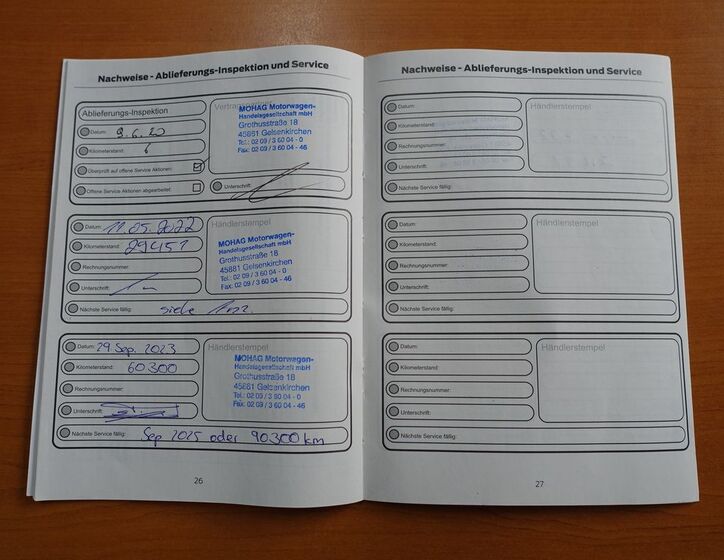 Nachweise - Ablieferungs-Inspektion und Service
Ablieferungs-Inspektion
Datum: 9.6.20
Kilometerstand: 6
Überprüft auf offene Service Aktionen:
Offene Service Aktionen abgearbeitet:
MOHAG Motorwagen-
Handelsgesellschaft mbH
Grothusstraße 18
45881 Gelsenkirchen
Tel.: 02 09 / 3 60 04 - 0
Fax: 02 09 / 3 60 04 - 46
Unterschrift:
Datum: 11.05.2022
Kilometerstand: 29451
Rechnungsnummer:
Unterschrift:
Händlerstempel
MOHAG Motorwagen-
Handelsgesellschaft mbH
Grothusstraße 18
45881 Gelsenkirchen
Tel.: 02 09 / 3 60 04 - 0
Fax: 02 09 / 3 60 04 - 46
Nächste Service fällig: siehe
Datum: 29 Sep. 2023
Kilometerstand: 60300
Rechnungsnummer:
Unterschrift:
Händlerstempel
MOHAG Motorwagen-
Handelsgesellschaft mbH
Grothusstraße 18
45881 Gelsenkirchen
Tel.: 02 09 / 3 60 04 - 0
Fax: 02 09 / 3 60 04 - 46
Nächste Service fällig: Sep 2025 oder 90300 km
26
Nachweise - Ablieferungs-Inspektion und Service
Datum:
Kilometerstand:
Rechnungsnummer:
Unterschrift:
Händlerstempel
Nächste Service fällig:
Datum:
Kilometerstand:
Rechnungsnummer:
Unterschrift:
Händlerstempel
Nächste Service fällig:
Datum:
Kilometerstand:
Rechnungsnummer:
Unterschrift:
Händlerstempel
Nächste Service fällig:
27